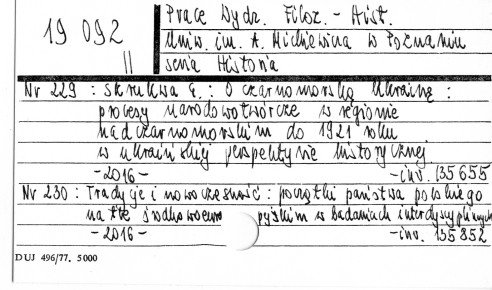 19 092
II
Prace Wydz. Filoz. - Hist.
Uniw. im. A. Mickiewicza w Poznaniu
seria Historia
Nr 229 : Skrukwa G. : O czarnomorską Ukrainę :
procesy narodowotwórcze w regionie
nadczarnomorskim do 1921 roku
w ukraińskiej perspektywie historycznej
-2016- -inv. 135 655
Nr 230 : Tradycje i nowoczesność : początki państwa polskiego
na tle środkowoeuro pejskim w badaniach interdyscyplinarnych
-2016- -inv. 135 852
DUJ 496/77. 5000